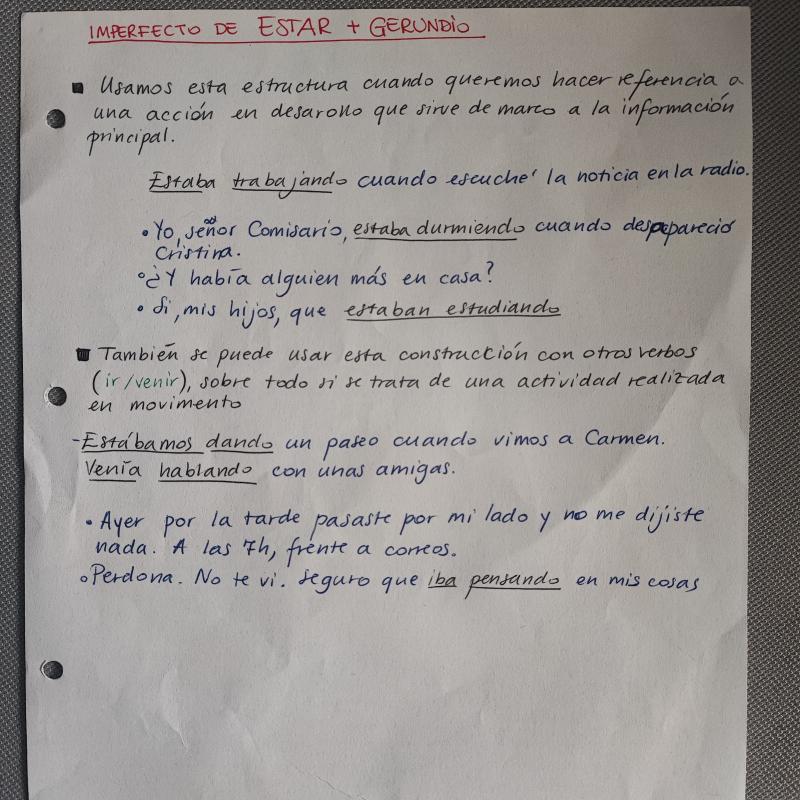 IMPERFECTO DE ESTAR + GERUNDIO
Usamos esta estructura cuando queremos hacer referencia a
una acción en desarollo que sirve de marco a la información
principal.
Estaba trabajando cuando escuché la noticia en la radio.
• Yo, señor Comisario, estaba durmiendo cuando desapareció
Cristina.
° ¿Y había alguien más en casa?
• Si, mis hijos, que estaban estudiando
También se puede usar esta construcción con otros verbos
(ir/venir), sobre todo si se trata de una actividad realizada
en movimiento
- Estábamos dando un paseo cuando vimos a Carmen.
Venía hablando con unas amigas.
• Ayer por la tarde pasaste por mi lado y no me dijiste
nada. A las 7h, frente a correos.
° Perdona. No te vi. Seguro que iba pensando en mis cosas